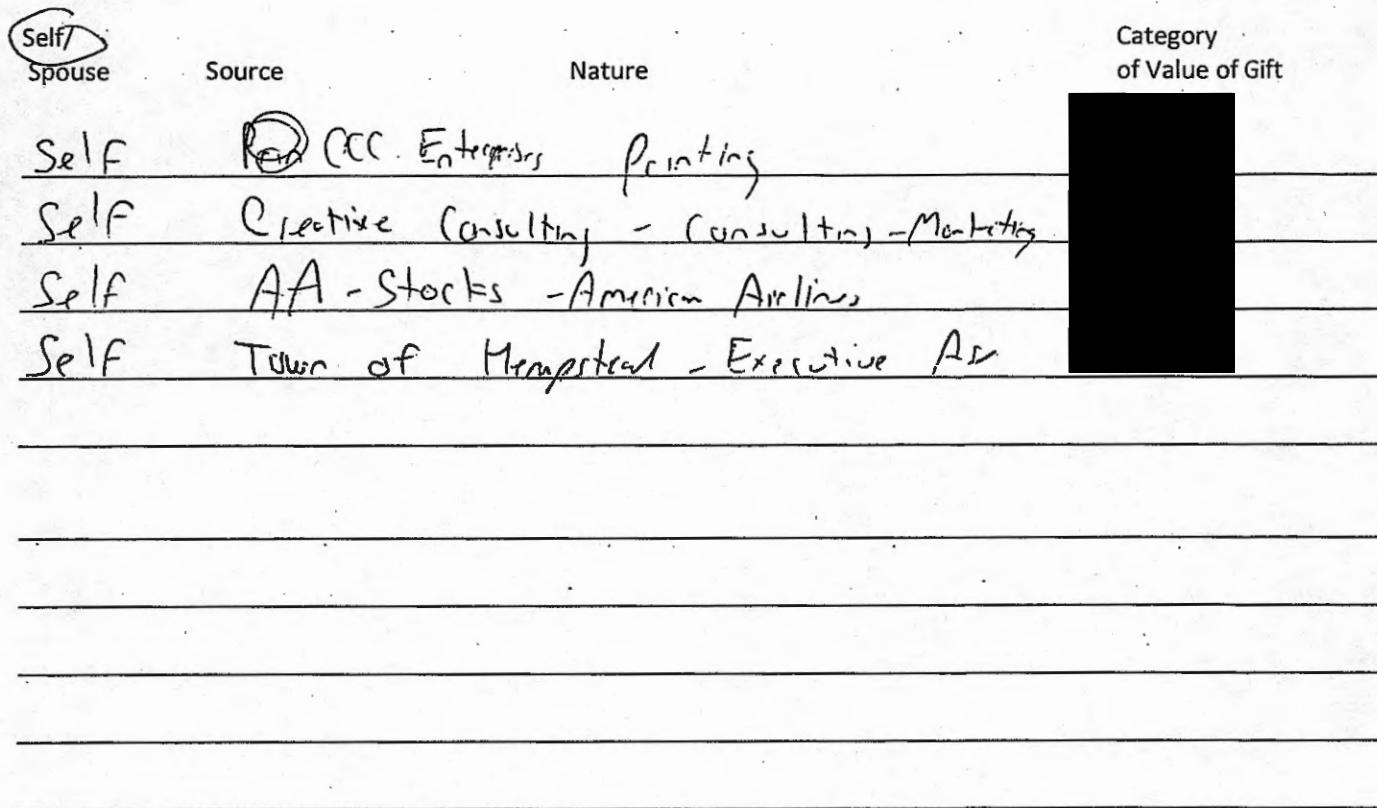 Self/
Spouse Source Nature Category of Value of Gift
Self CCC Enterprises Printing
Self Creative Consulting - Consulting - Marketing
Self AA - Stocks - American Airlines
Self Town of Hempstead - Executive As